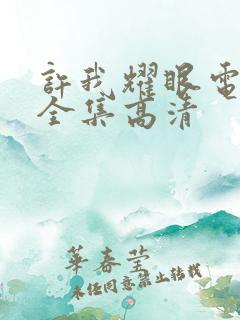 許我耀眼電
全集高清
華春瑩
未经同意禁止转载